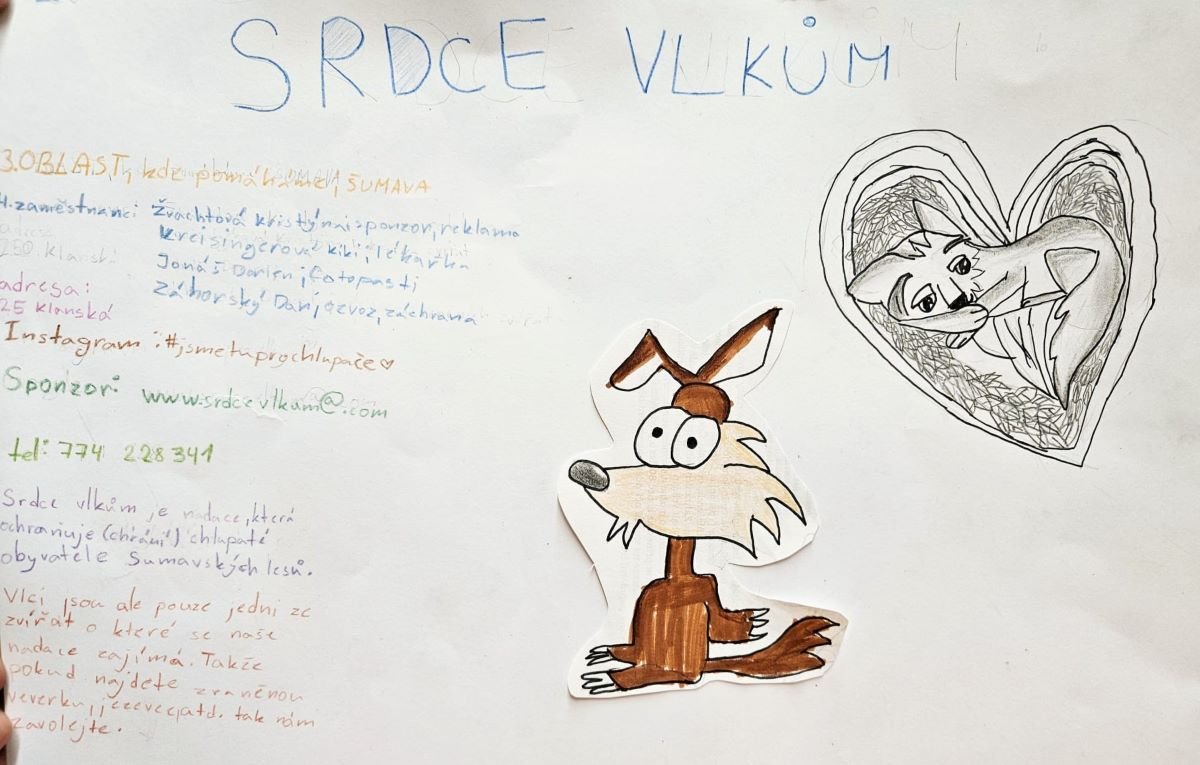 SRDCE VLKŮM
3.OBLAST, kde pomáháme, ŠUMAVA
4.zaměstnanci Žvachtová kristýna;sponzor,reklama
kreisingerová kiki, lékařka
Jonáš Darien; fotopasti
Záhorský Dan; ozvoz,záchrana
adresa:
25 klanská
Instagram :#jsmetuprochlupače♡
Sponzor: www.srdcevlkum@.com
tel: 774 228 341
Srdce vlkům je nadace,která
ochraňuje (chrání) chlupaté
obyvatele Šumavských lesů.
Vlci jsou ale pouze jedni ze
zvířat o které se naše
nadace zajímá. Takže
pokud najdete zraněnou
veverku, atd. tak nám
zavolejte.